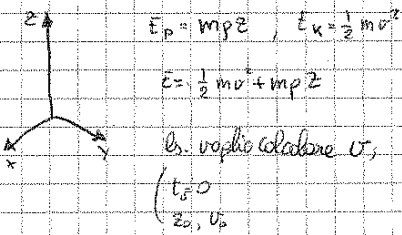 z
E_p = mgz , E_k = 1/2 mv²
E = 1/2 mv² + mgz
x
y
Es. voglio calcolare v,
t_0 = 0
z_0, v_0